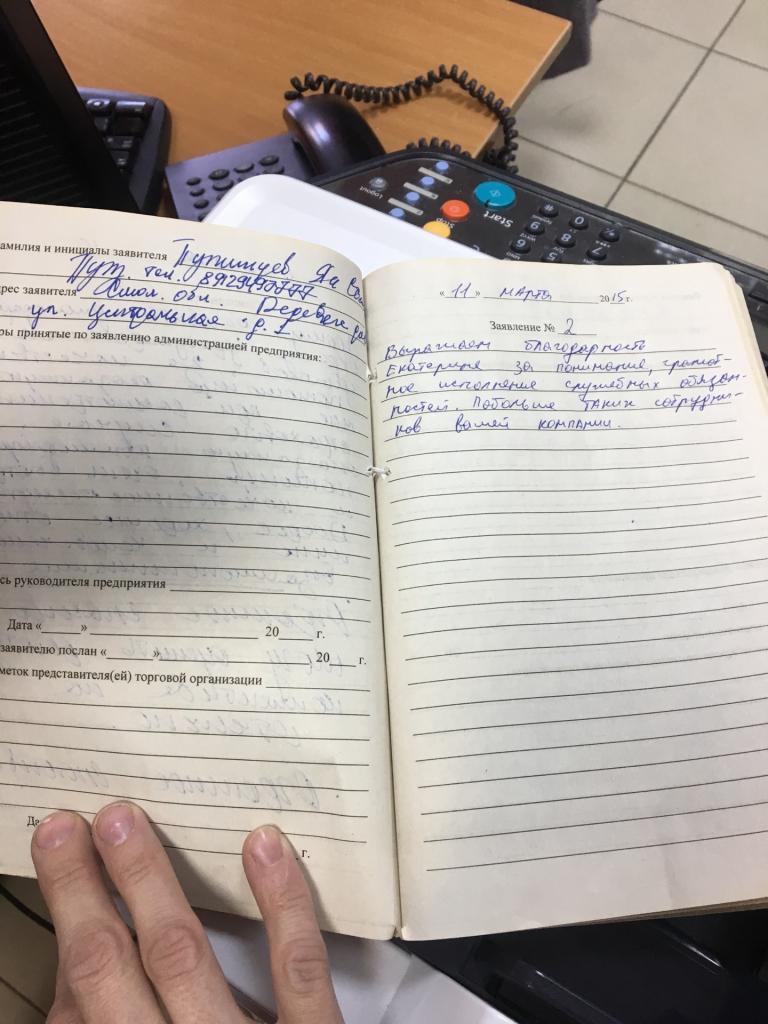 амилия и инициалы заявителя
тел. 8929490777
рес заявителя Смол. обл. Деревня
ул. Центральная д. 1
ры принятые по заявлению администрацией предприятия:
сь руководителя предприятия
Дата « » 20 г.
заявителю послан « » 20 г.
меток представителя(ей) торговой организации
Да
г.
« 11 » марта 2015 г.
Заявление № 2
Выражаем благодарность
Екатерине за понимание, грамот-
ное исполнение служебных обязан-
ностей. Побольше таких сотрудни-
ков вашей компании.
Logout
Stop
Start